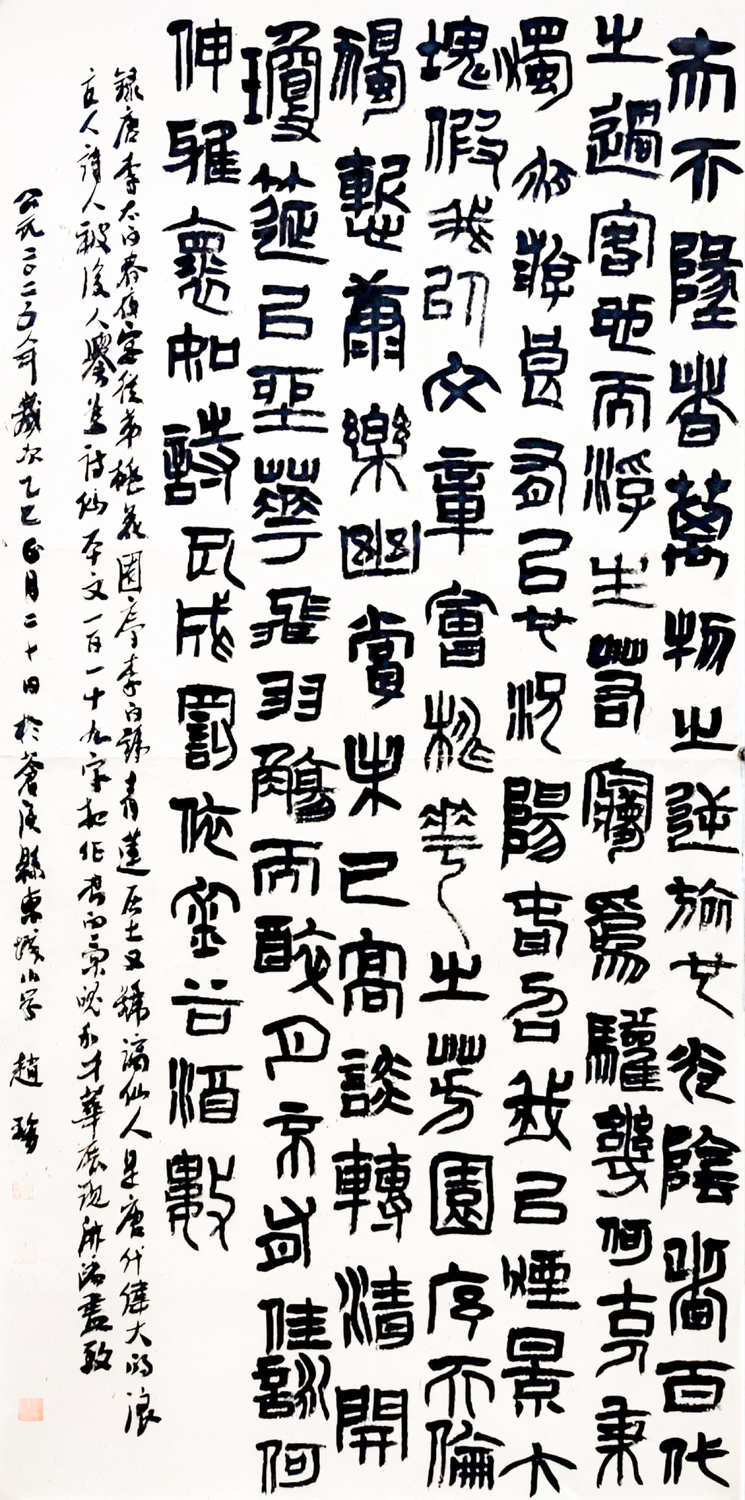 夫天地者萬物之逆旅也光陰者百代
之過客也而浮生若夢為歡幾何古人秉
燭夜遊良有以也況陽春召我以煙景大
塊假我以文章會桃花之芳園序天倫
獨慚康樂幽賞未已高談轉清開
瓊筵以坐花飛羽觴而醉月不有佳詠何
伸雅懷如詩不成罰依金谷酒數
錄唐李太白春夜宴從弟桃花園序李白號青蓮居士又號謫仙人是唐代偉大的浪
詩人被後人譽為詩仙本文一百一十九字把作者的才華展現淋漓盡致
公元二〇二五年歲次乙巳正月二十日於蒼溪縣東城小學 趙